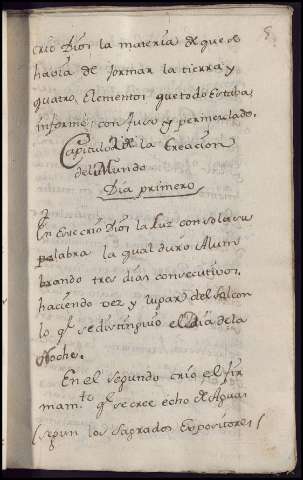 5
crió Dios la materia de que se
havia de formar la tierra y
quatro Elementos que todo Estaba
informe, confuso y permesclado.
Capitulo 2 de la Creacion
del Mundo
Dia primero
En Este crió Dios la Luz con sola su
palabra la qual duro Alum
brando tres dias consecutivos,
haciendo vez y lugar del sol con
lo ql se distinguio el Dia de la
Noche.
En el segundo crio el fir
mamto ql se cree echo de Aguas
(segun los sagrados Expositores)